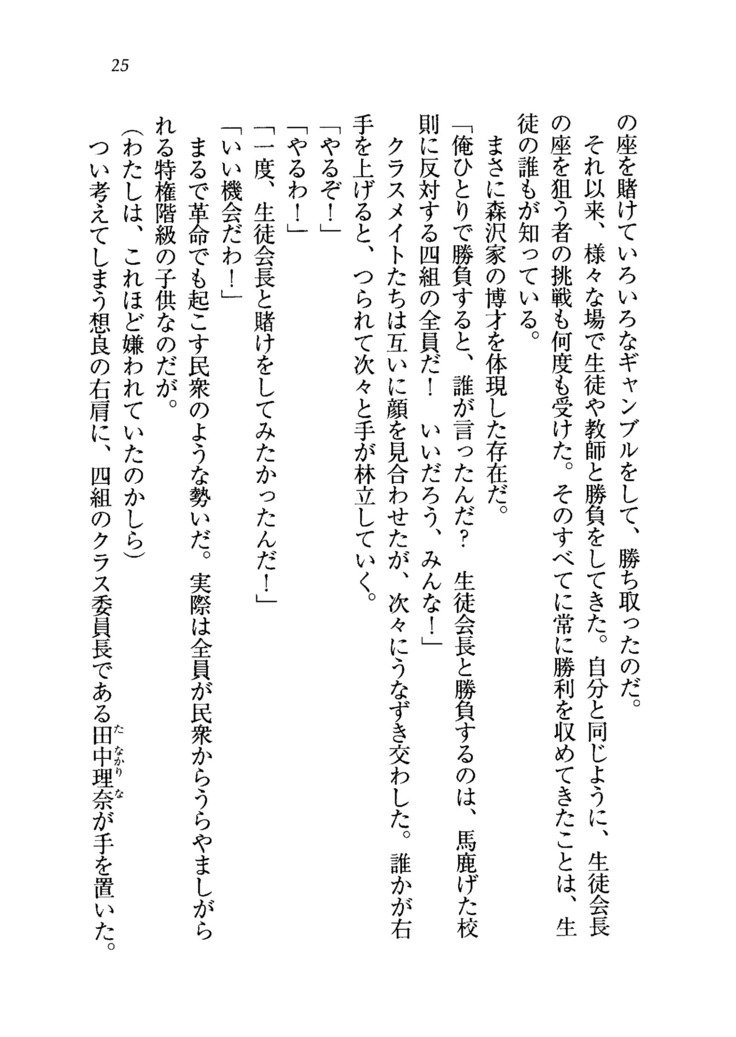 25
の座を賭けていろいろなギャンブルをして、勝ち取ったのだ。
それ以来、様々な場で生徒や教師と勝負をしてきた。自分と同じように、生徒会長
の座を狙う者の挑戦も何度も受けた。そのすべてに常に勝利を収めてきたことは、生
徒の誰もが知っている。
まさに森沢家の博才を体現した存在だ。
「俺ひとりで勝負すると、誰が言ったんだ？　生徒会長と勝負するのは、馬鹿げた校
則に反対する四組の全員だ！　いいだろう、みんな！」
クラスメイトたちは互いに顔を見合わせたが、次々にうなずき交わした。誰かが右
手を上げると、つられて次々と手が林立していく。
「やるぞ！」
「やるわ！」
「一度、生徒会長と賭けをしてみたかったんだ！」
「いい機会だわ！」
まるで革命でも起こす民衆のような勢いだ。実際は全員が民衆からうらやましがら
れる特権階級の子供なのだが。
（わたしは、これほど嫌われていたのかしら）
つい考えてしまう想良の右肩に、四組のクラス委員長である田中理奈が手を置いた。
たなかりな